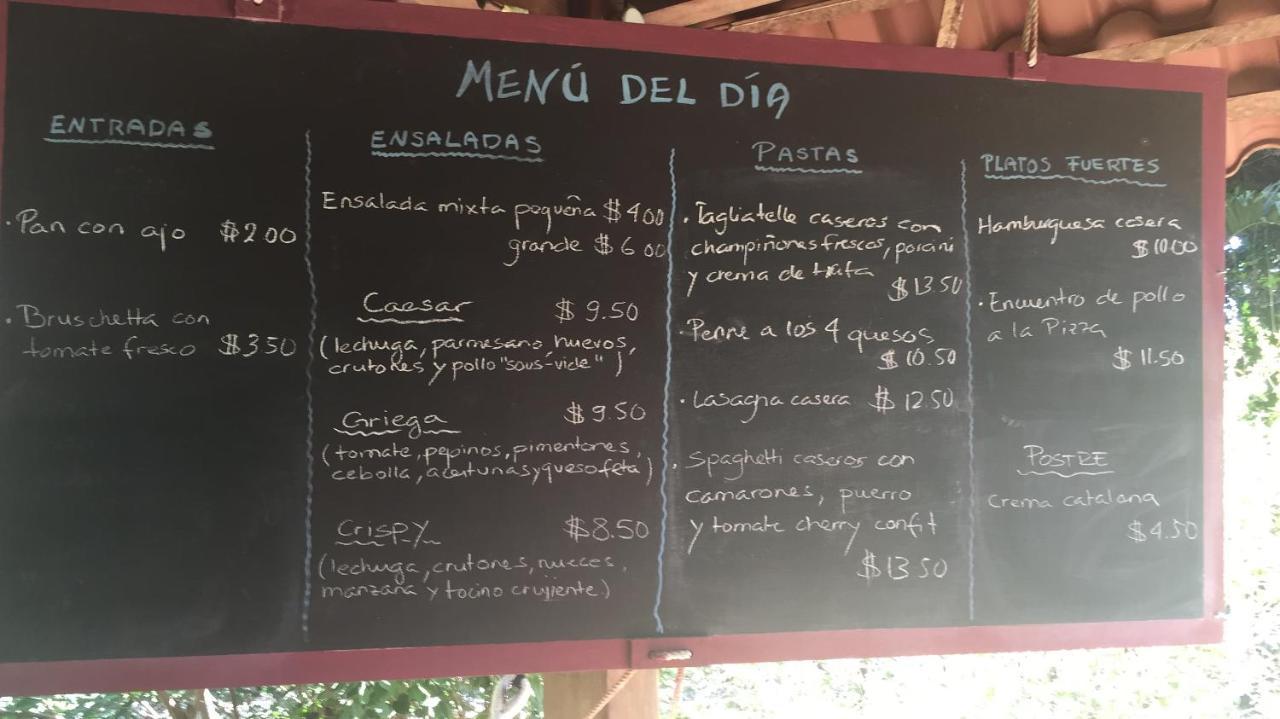 MENÚ DEL DÍA
ENTRADAS
· Pan con ajo $2.00
· Bruschetta con
tomate fresco $3.50
ENSALADAS
Ensalada mixta pequeña $4.00
grande $6.00
Caesar $9.50
(lechuga, parmesano, huevos,
crutones y pollo "sous-vide")
Griega $9.50
(tomate, pepinos, pimentones,
cebolla, aceitunas y queso feta)
Crispy $8.50
(lechuga, crutones, nueces,
manzana y tocino crujiente)
PASTAS
· Tagliatelle caseros con
champiñones frescos, porcini
y crema de trufa
$13.50
· Penne a los 4 quesos
$10.50
· Lasagna casera $12.50
· Spaghetti caseros con
camarones, puerro
y tomate cherry confit
$13.50
PLATOS FUERTES
Hamburguesa casera
$10.00
· Encuentro de pollo
a la Pizza
$11.50
POSTRE
Crema catalana
$4.50